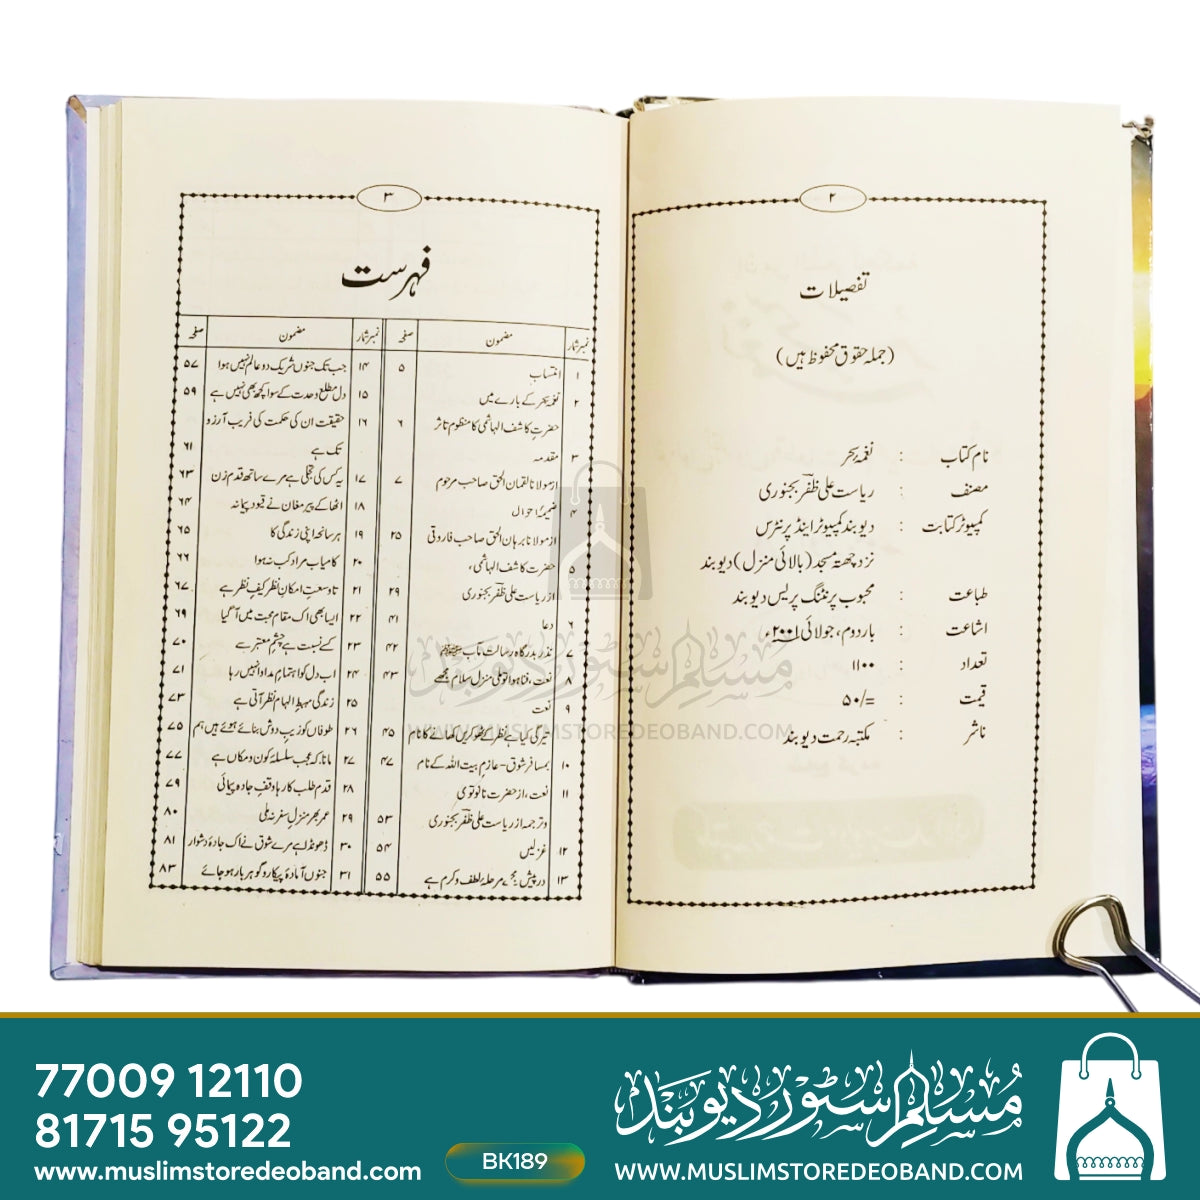 ۲
تفصیلات
(جملہ حقوق محفوظ ہیں)
نام کتاب : نغمۂ بحر
مصنف : ریاست علی ظفر بجنوری
کمپیوٹر کتابت : دیوبند کمپیوٹر اینڈ پرنٹرس
نزد چھتہ مسجد (بالائی منزل) دیوبند
طباعت : محبوب پرنٹنگ پریس دیوبند
اشاعت : بار دوم، جولائی ۲۰۰۱ء
تعداد : ۱۱۰۰
قیمت : ۵۰/=
ناشر : مکتبہ رحمت دیوبند
۳
فہرست
نمبر شمار مضمون صفحہ
۱ انتساب ۵
۲ نغمۂ بحر کے بارے میں
حضرت کاشف الہاشمی کا منظوم تاثر ۶
۳ مقدمہ
از مولانا لقمان الحق صاحب مرحوم ۷
۴ ضمیرُ احوال
از مولانا برہان الحق صاحب فاروقی ۲۵
۵ حضرت کاشف الہاشمی،
از ریاست علی ظفر بجنوری ۲۹
۶ دعا ۴۱
۷ نذر بدرگاہ رسالت مآب ﷺ ۴۲
۸ نعت، فنا ہوا تو ملی منزل سلام مجھے ۴۳
۹ نعت
تیرگی کیا ہے نظر کے ٹھوکریں کھانے کا نام ۴۵
۱۰ بمسافر شوق - عازم بیت اللہ کے نام ۴۷
۱۱ نعت، از حضرت نانوتوی
و ترجمہ از ریاست علی ظفر بجنوری ۵۳
۱۲ غزلیں ۵۴
۱۳ درپیش مرحلۂ لطف و کرم ہے ۵۵
نمبر شمار مضمون صفحہ
۱۴ جب تک جنوں شریک دو عالم نہیں ہوا ۵۷
۱۵ دل مطلع وحدت کے سوا کچھ بھی نہیں ہے ۵۹
۱۶ حقیقت ان کی حکمت کی فریب آرزو
تک ہے ۶۱
۱۷ یہ کس کی تجلی ہے مرے ساتھ قدم زن ۶۳
۱۸ اٹھا کے پیر مغاں نے قیود پیمانہ ۶۴
۱۹ ہر سانحہ اپنی زندگی کا ۶۵
۲۰ کامیاب مراد کب نہ ہوا ۶۶
۲۱ تا وسعت امکان نظر کیف نظر ہے ۶۷
۲۲ ایسا بھی اک مقام محبت میں آ گیا ۶۹
۲۳ کسے نسبت ہے چشم معتبر سے ۷۰
۲۴ اب دل کو اہتمام مداوا نہیں رہا ۷۱
۲۵ زندگی مہبط الہام نظر آتی ہے ۷۳
۲۶ طوفاں کو زیب دوش بنائے ہوئے ہیں ہم ۷۵
۲۷ مانا کہ عجب سلسلہ کون و مکاں ہے ۷۷
۲۸ قدم طلب کا رہا وقف جادہ پیمائی ۷۹
۲۹ عمر بھر منزل سفر نہ ملی ۸۰
۳۰ ڈھونڈا ہے مرے شوق نے اک جادۂ دشوار ۸۱
۳۱ جنوں آمادۂ پیکار و گوہر بار ہو جائے ۸۳
مسلم سٹور دیوبند
WWW.MUSLIMSTOREDEOBAND.COM
77009 12110
81715 95122
www.muslimstoredeoband.com
BK189
مسلم سٹور دیوبند
WWW.MUSLIMSTOREDEOBAND.COM